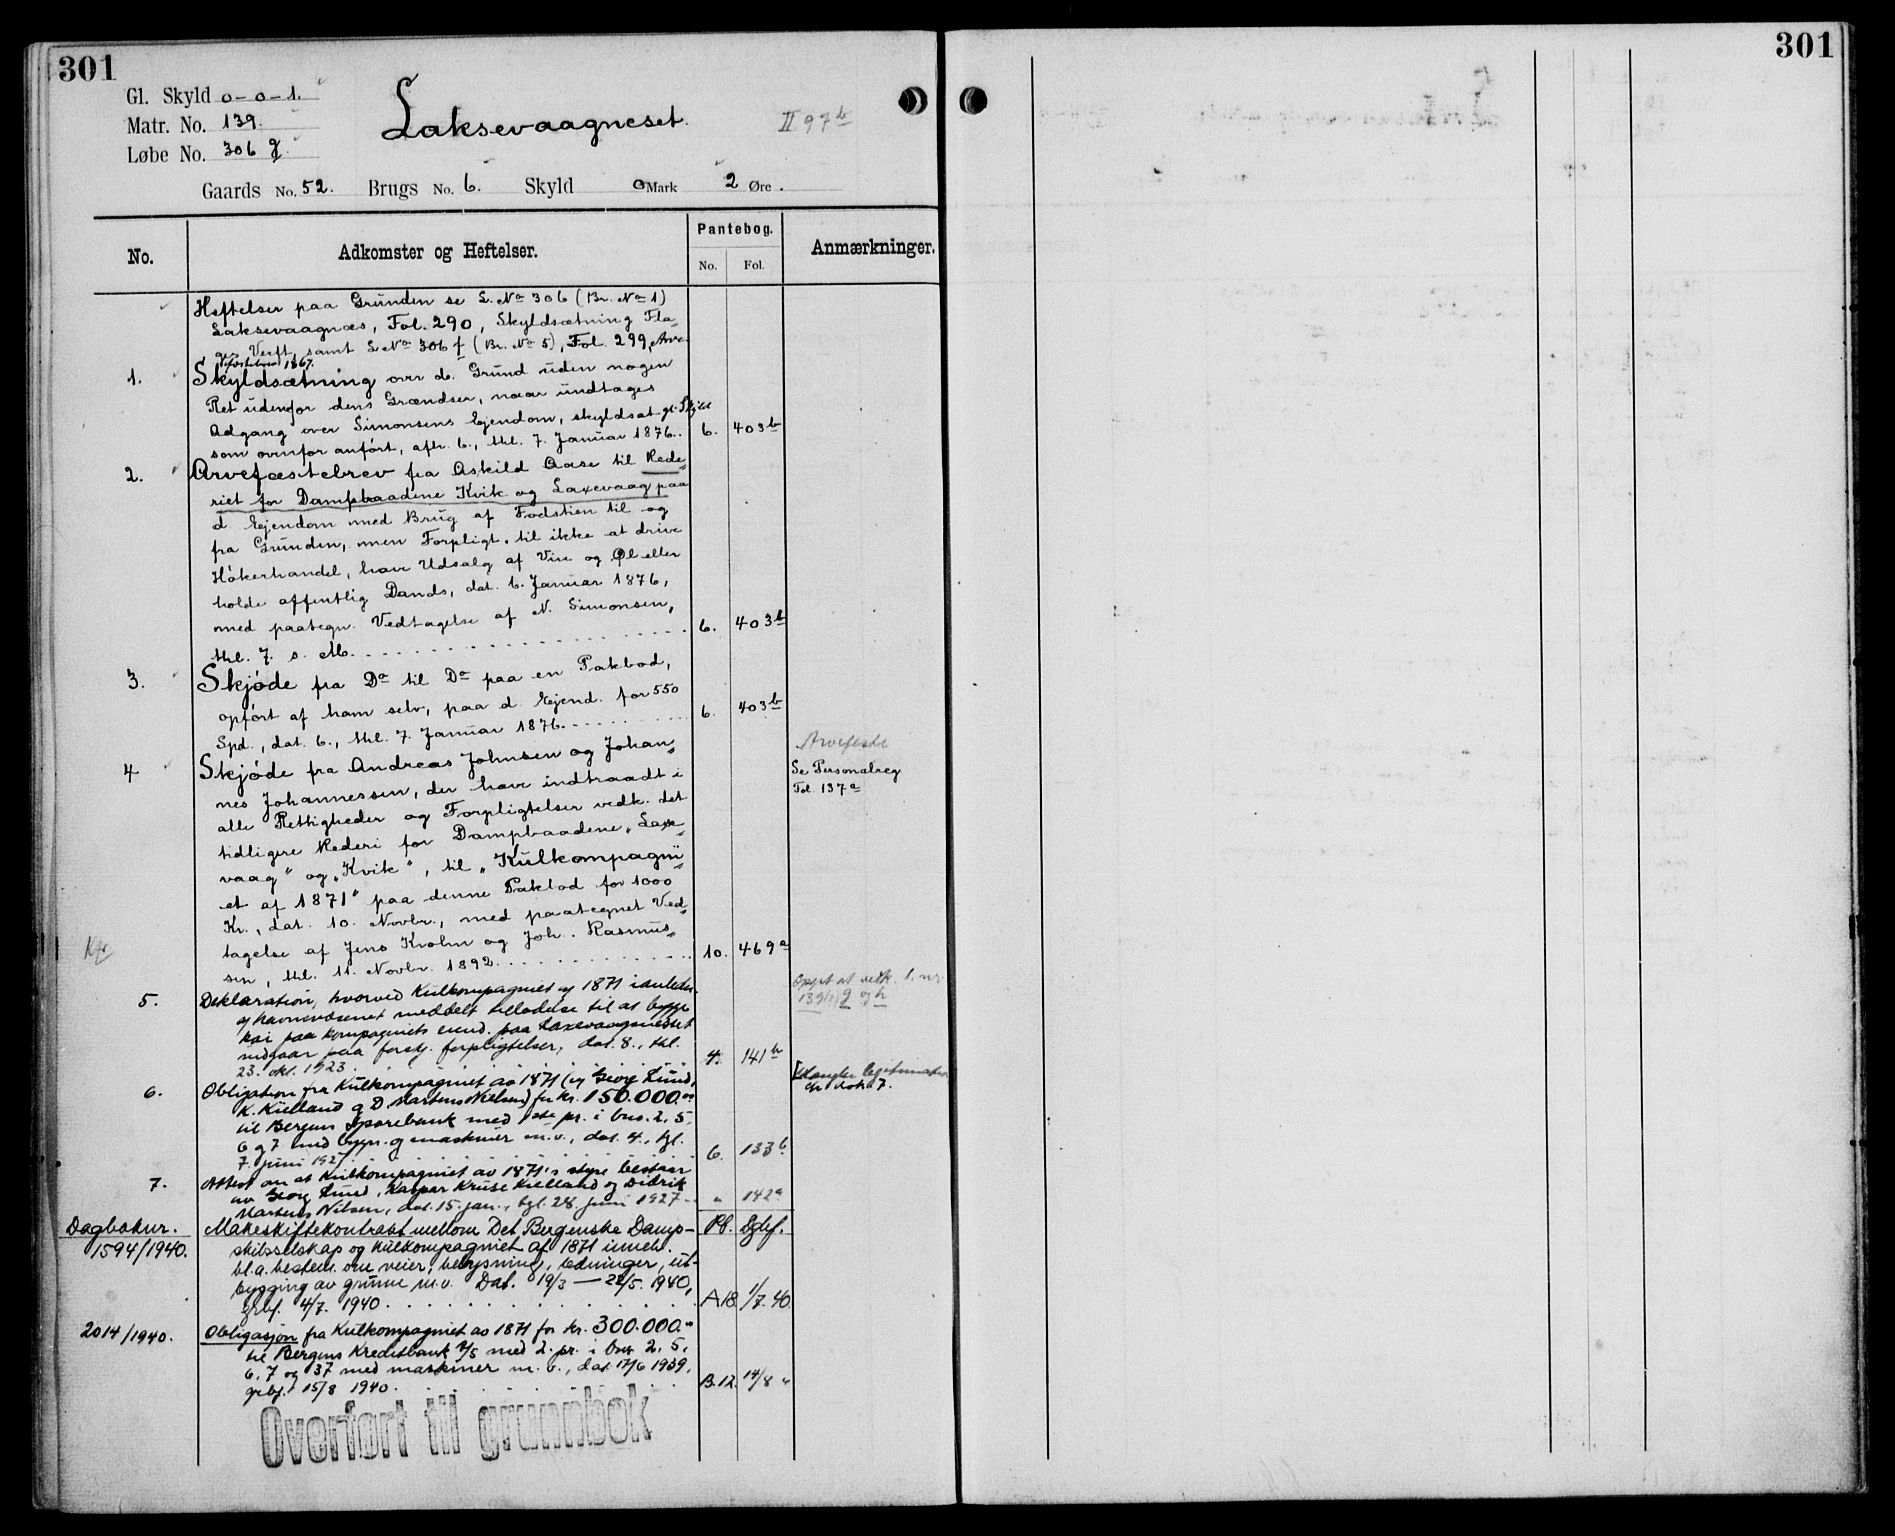 301
301
Gl. Skyld 0-0-1.
Matr. No. 139.
Løbe No. 306 g.
Laksevaagneset.
II 97 b
Gaards No. 52. Brugs No. 6. Skyld 0 Mark 2 Øre.
No.
Adkomster og Heftelser.
Pantebog.
No. Fol.
Anmærkninger.
Heftelser paa Grunden se L. No 306 (Br. No 1)
Laksevaagnæs, Fol. 290, Skyldsætning Fla-
ges Verft, samt L. No 306 f (Br. No 5), Fol. 299, Arve-
fæstebrev 1867.
1. Skyldsætning over d. Grund uden nogen
Ret udenfor dens Grændser, naar undtages
Adgang over Simonsens Ejendom, skyldsat gl. Skyld
som ovenfor anført, afh. 6., thl. 7. Januar 1876.. 6. 403 b
2. Arvefæstebrev fra Askild Aase til Rede-
riet for Dampbaadene Kvik og Laxevaag paa
d Ejendom med Brug af Fodstien til og
fra Grunden, men Forpligt. til ikke at drive
Høkerhandel, have Udsalg af Vin og Øl eller
holde offentlig Dands, dat. 6. Januar 1876,
med paategn. Vedtagelse af N. Simonsen,
thl. 7. s. M. 6. 403 b
3. Skjøde fra Do til Do paa en Pakbod,
opført af ham selv, paa d. Ejend. for 550
Spd., dat. 6., thl. 7. Januar 1876. 6. 403 b
4 Skjøde fra Andreas Johnsen og Johan-
nes Johannessen, der have indtraadt i
alle Rettigheder og Forpligtelser vedk. det
tidligere Rederi for Dampbaadene „Laxe-
vaag" og „Kvik", til „Kulkompagni-
et af 1871" paa denne Pakbod for 1000
Kr., dat. 10. Novbr., med paategnet Ved-
tagelse af Jens Krohn og Joh. Rasmus-
sen, thl. 11. Novbr. 1892. 10. 469 a
Arvefeste
Se Personalreg
Fol 137 a
5. Deklaration, hvorved Kulkompagniet af 1871
og havnevæsenet meddelt tilladelse til at bygge
kai paa kompagniets eiend. paa Laxevaagnesset
indgaar paa forskj. forpligtelser, dat. 8., thl.
23. okt. 1923. 4. 141 b
139 g og h
6. Obligation fra Kulkompagniet av 1871 (ved Georg Lund,
K. Kielland og D Martens Nielsen) for kr. 150.000.00
til Bergens Sparebank med 1ste pr. i bno. 2, 5,
6 og 7 med bygn. og maskiner m.v., dat. 4., tgl.
7. juni 1927. 6. 133 b
Mangler legitimation
cfr dok 7.
7. Attest om at Kulkompagniet av 1871's styre bestaar
av Georg Lund, Kaspar Kruse Kielland og Didrik
Martens Nilsen, dat. 15. jan., tgl. 28. juni 1927. " 142 a
Dagboknr. Makeskiftekontrakt mellom Det Bergenske Damp- Pb. Dgbf.
1594/1940. skibsselskap og Kulkompagniet af 1871 inneh.
bl.a. bestem. om veier, belysning, ledninger, ut-
bygging av grunn m.v. Dat. 19/3 — 22/5. 1940,
grbf. 4/7. 1940. A18 1/7. 40
2014/1940. Obligasjon fra Kulkompagniet av 1871 for kr. 300.000.00
til Bergens Kreditbank A/S med 2. pr. i bnr 2, 5,
6, 7 og 37 med maskiner m. v., dat. 17/6 1939,
grbf. 15/8 1940. B.12. 14/8 "
Overført til grunnbok